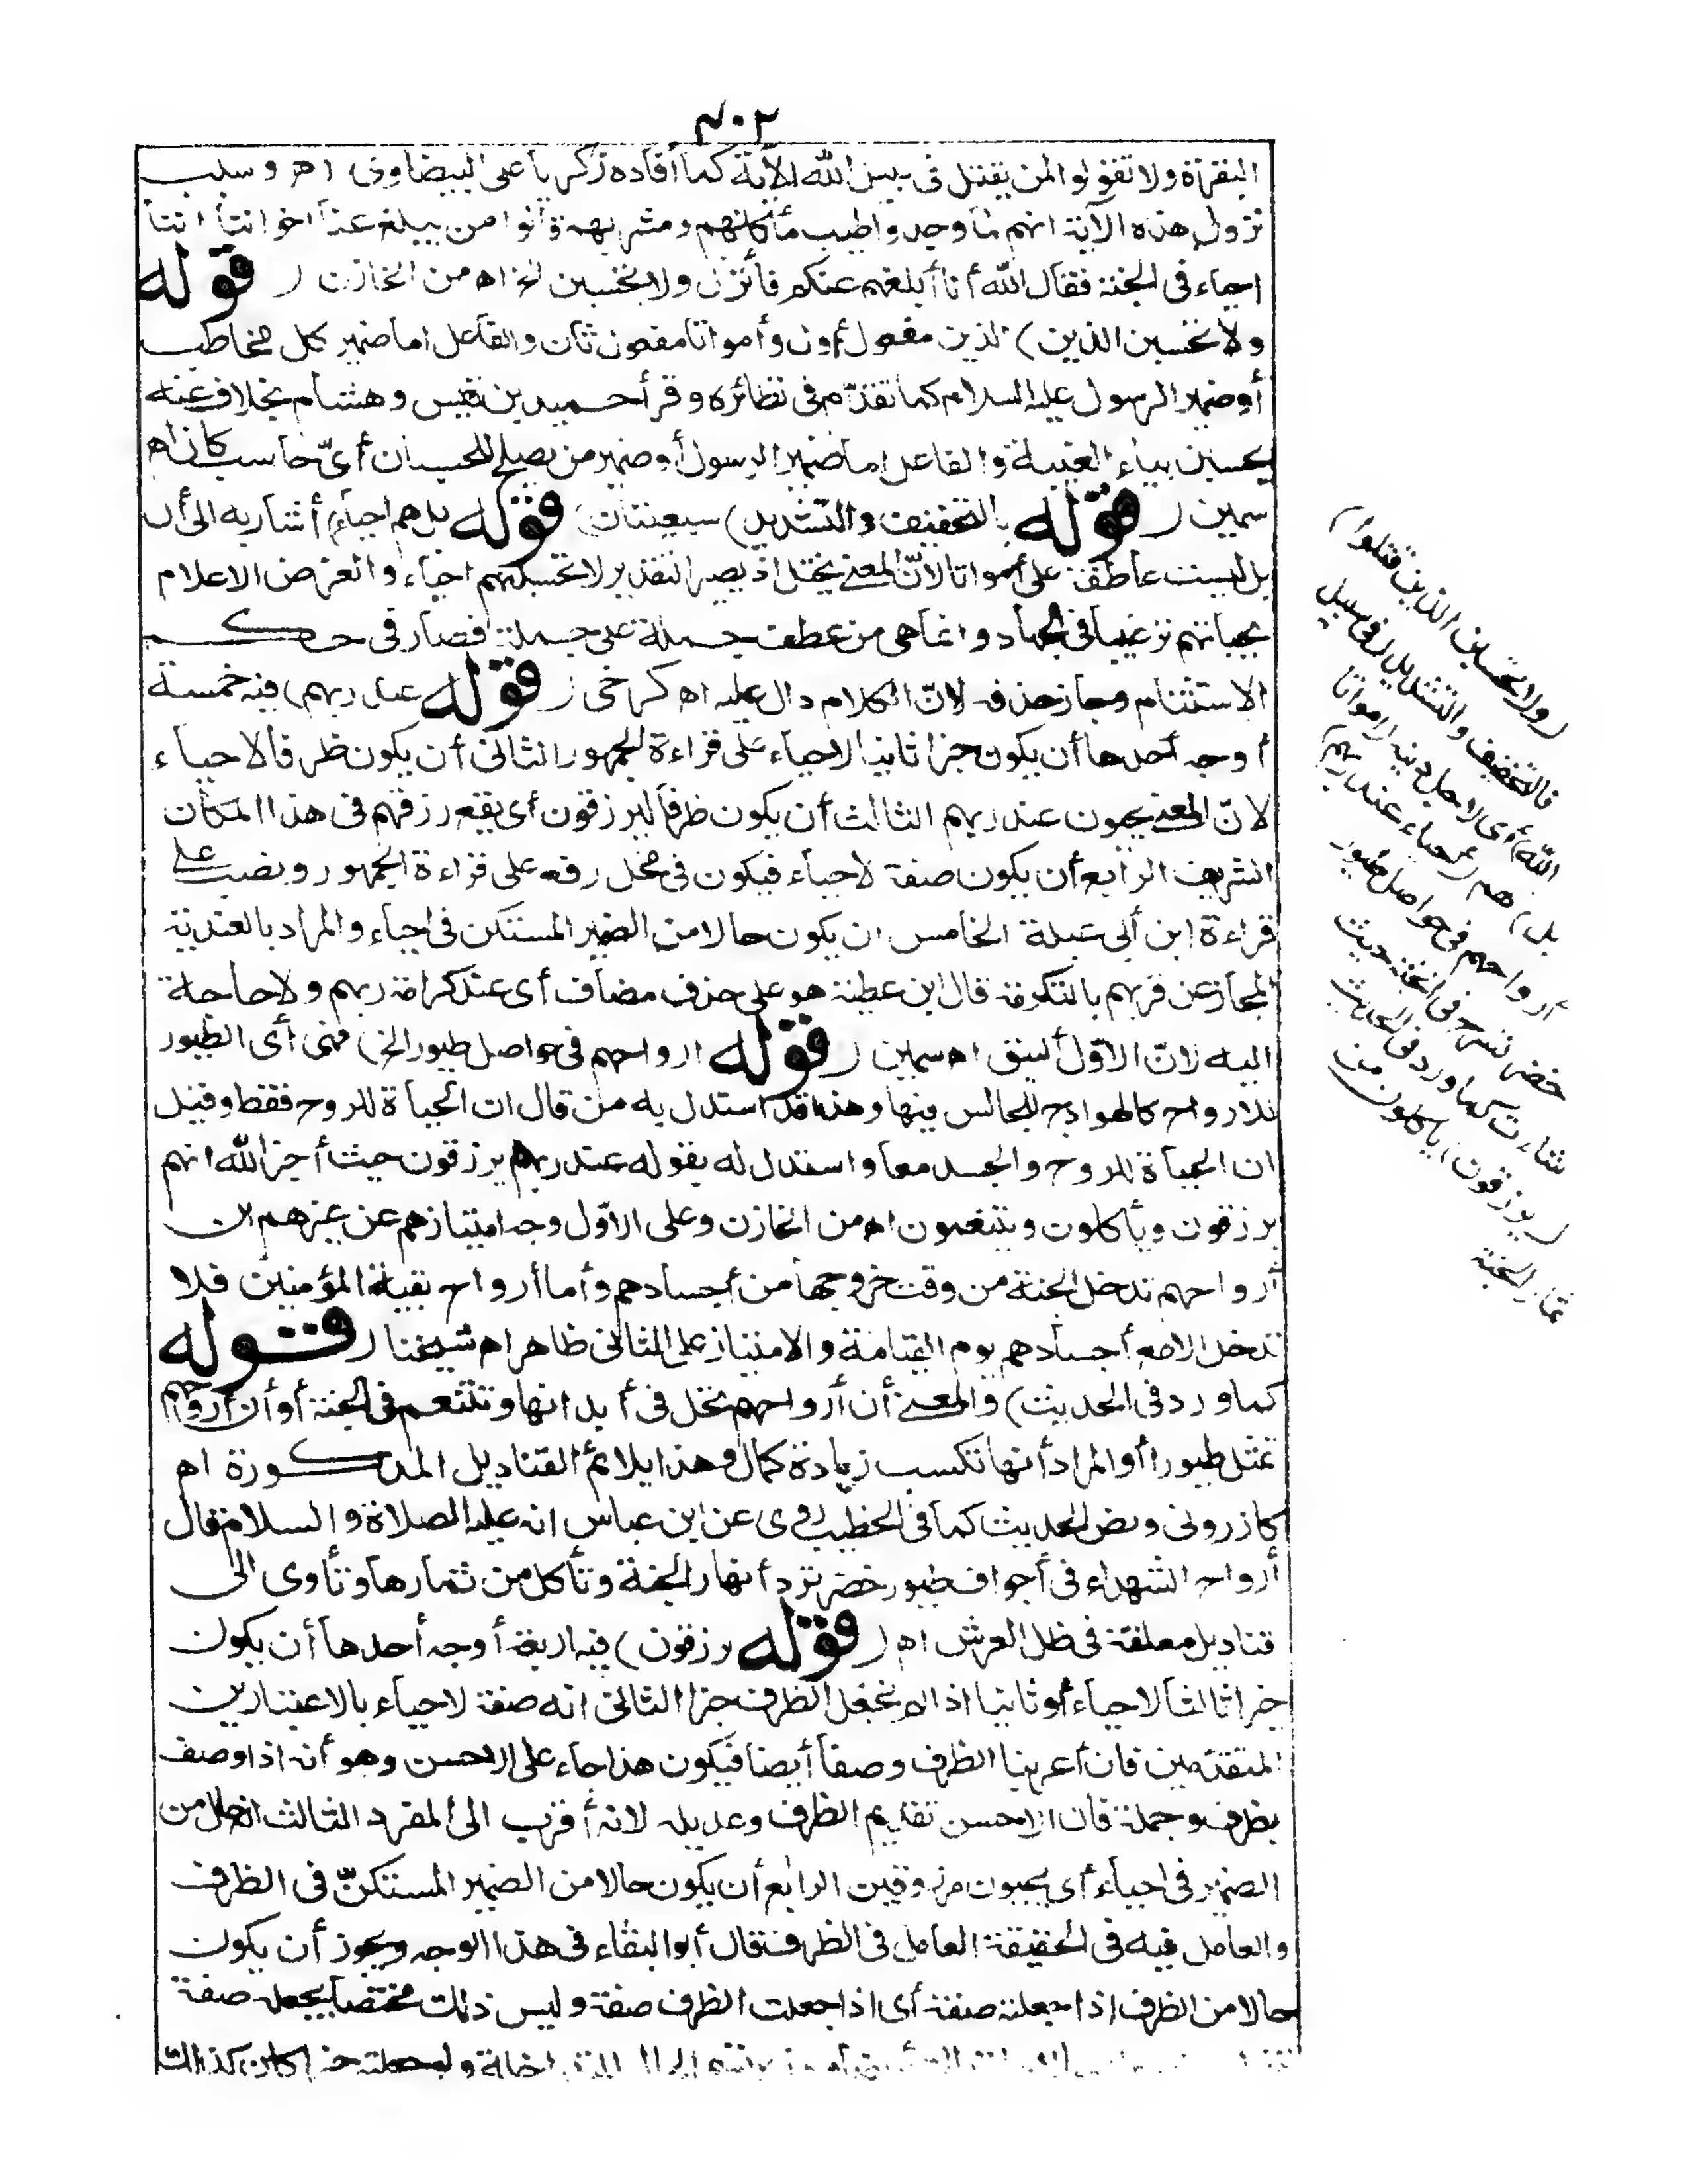 ٢٠٨
البقرة ولا تقولوا لمن يقتل فى سبيل الله الآية كما أفاده زكريا على البيضاوى اه وسبب
نزول هذه الآية انهم لما وجدوا طيب مأكلهم ومشربهم قالوا من يبلغ عنا اخواننا اننا
احياء فى الجنة فقال الله أنا أبلغهم عنكم فأنزل ولا تحسبن الخ اه من الخازن ( قوله
ولا تحسبن الذين) الذين مفعول أول وأمواتا مفعول ثان والفاعل اما ضمير كل مخاطب
أو ضمير الرسول عليه السلام كما تقدّم فى نظائره وقرأ حميد بن قيس وهشام بخلاف عنه
يحسبن بياء الغيبة والفاعل اما ضمير الرسول أو ضمير من يصلح للحسبان أىّ حاسب كان اه
سمين ( قوله بالتخفيف والتشديد) سبعيتان ( قوله بل هم احياء) أشار به الى أن
بل ليست عاطفة على أمواتا لانّ المعنى يختل اذ يصير التقدير لا تحسبنهم احياء والغرض الاعلام
بحياتهم ترغيبا فى الجهاد وانما هى من عطف جملة على جملة فصار فى حكم
الاستئنام ومجاز حذف لانّ الكلام دال عليه اه كرخى ( قوله عند ربهم) فيه خمسة
أوجه أحدها أن يكون خبرا ثانيا لاحياء على قراءة الجمهور الثانى أن يكون ظرفا لاحياء
لانّ المعنى يحيون عند ربهم الثالث أن يكون ظرفا ليرزقون أى يقع رزقهم فى هذا المكان
الشريف الرابع أن يكون صفة لاحياء فيكون فى محل رفع على قراءة الجمهور ونصب على
قراءة ابن أبى عبلة الخامس ان يكون حالا من الضمير المستكن فى احياء والمراد بالعندية
المجاز عن قربهم بالتكرمة قال ابن عطية هو على حذف مضاف أى عند كرامة ربهم ولا حاجة
اليه لانّ الاوّل أليق اه سمين ( قوله ارواحهم فى حواصل طيور الخ) فهى أى الطيور
للارواح كالهوادج للجالس فيها وهذا قد استدل به من قال ان الحياة للروح فقط وقيل
ان الحياة للروح والجسد معا واستدل له بقوله عند ربهم يرزقون حيث أخبر الله انهم
يرزقون ويأكلون ويتنعمون اه من الخازن وعلى الاوّل وجه امتيازهم عن غيرهم ان
أرواحهم تدخل الجنة من وقت خروجها من أجسادهم وأما أرواح بقية المؤمنين فلا
تدخل الا مع أجسادهم يوم القيامة والامتياز على الثانى ظاهر اه شيخنا ( قوله
كما ورد فى الحديث) والمعنى أن أرواحهم تحل فى أبدانها وتتنعم فى الجنة أو أن أرواحهم
تمثل طيورا أو المراد أنها تكسب زيادة كمال وهذا يلائم القناديل المذكورة اه
كازرونى ونص الحديث كما فى الخطيب روى عن ابن عباس انه عليه الصلاة والسلام قال
أرواح الشهداء فى أجواف طيور خضر ترد أنهار الجنة وتأكل من ثمارها وتأوى الى
قناديل معلقة فى ظل العرش اه ( قوله يرزقون) فيه اربعة أوجه أحدها أن يكون
خبرا ثالثا لاحياء أو ثانيا اذا لم نجعل الظرف خبرا الثانى انه صفة لاحياء بالاعتبارين
المتقدّمين فان أعربنا الظرف وصفا أيضا فيكون هذا جاء على الاحسن وهو أنه اذا وصف
بظرف وجملة فان الاحسن تقديم الظرف وعديله لانه أقرب الى المفرد الثالث انه حال من
الضمير فى احياء أى يحيون مرزوقين الرابع أن يكون حالا من الضمير المستكنّ فى الظرف
والعامل فيه فى الحقيقة العامل فى الظرف قال أبو البقاء فى هذا الوجه ويجوز أن يكون
حالا من الظرف اذا جعلته صفة أى اذا جعلت الظرف صفة وليس ذلك مختصا بجعله صفة
ولو جعلته خبرا كان كذلك
(ولا تحسبن الذين قتلوا)
بالتخفيف والتشديد (فى سبيل
الله) أى لاجل دينه (امواتا
بل) هم (أحياء عند ربهم)
أرواحهم فى حواصل طيور
خضر تسرح فى الجنة حيث
شاءت كما ورد فى الحديث
(يرزقون) يأكلون من
ثمار الجنة